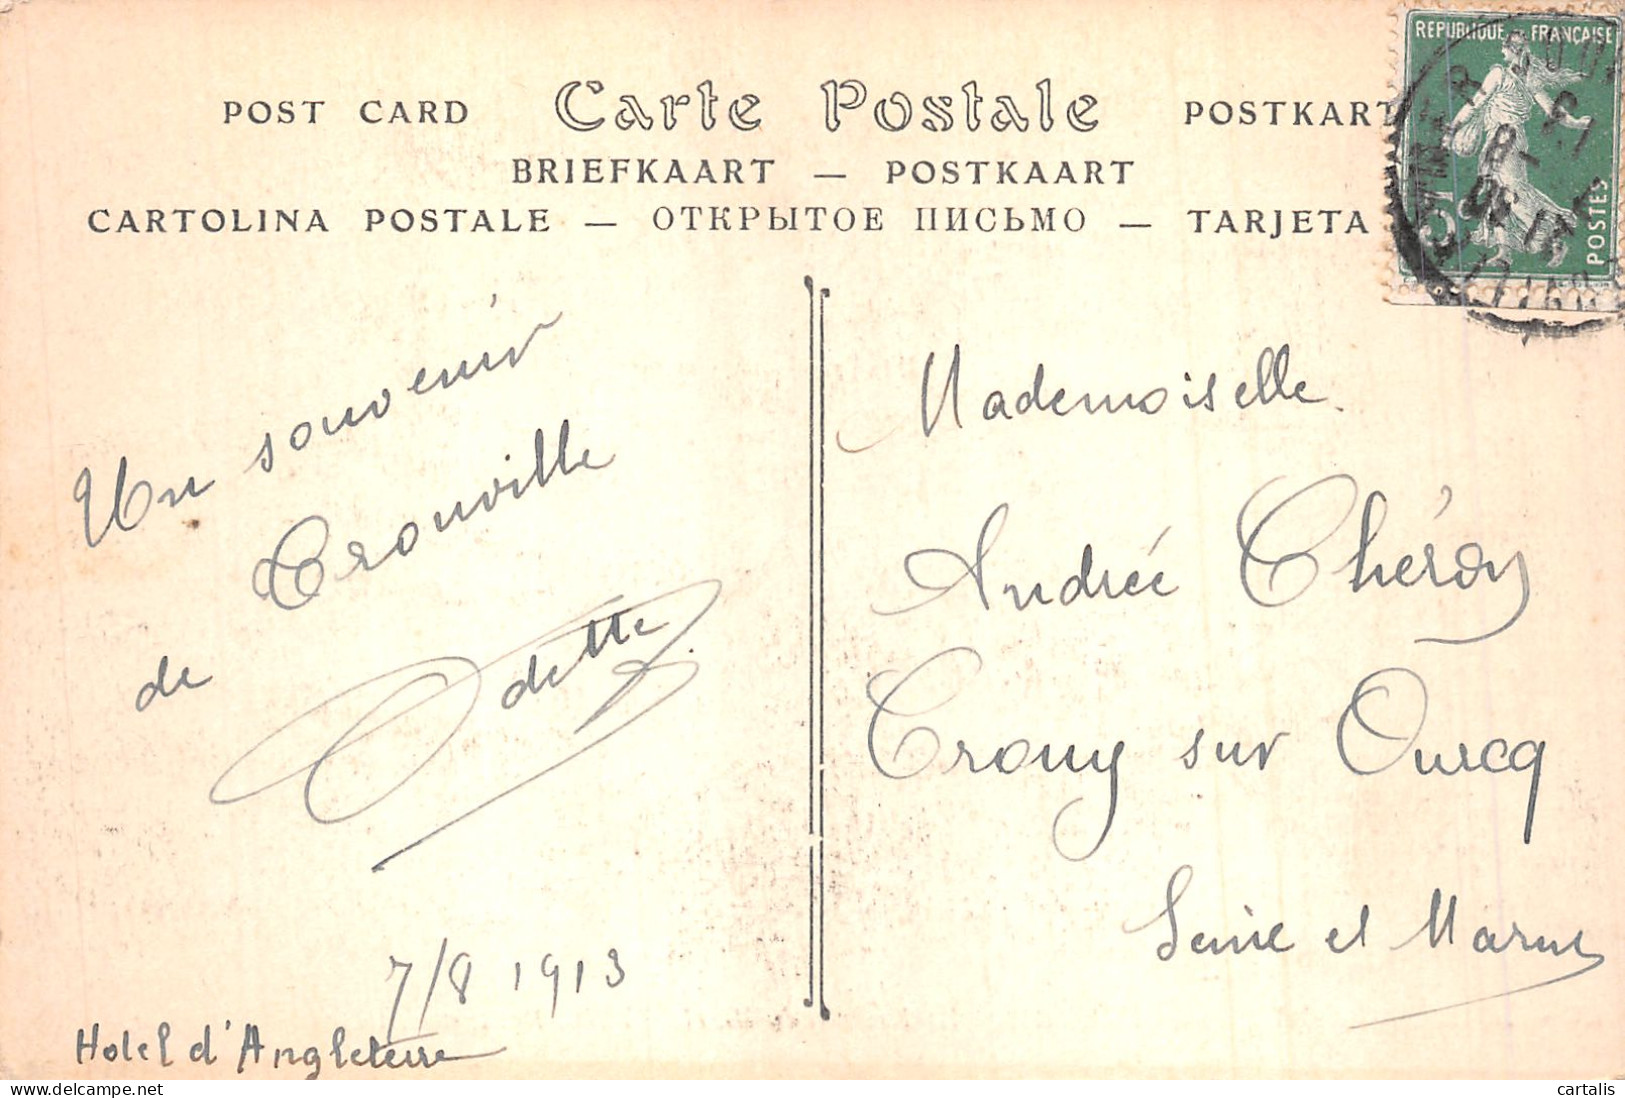 POST CARD Carte Postale POSTKART
BRIEFKAART — POSTKAART
CARTOLINA POSTALE — ОТКРЫТОЕ ПИСЬМО — TARJETA
REPUBLIQUE FRANÇAISE
POSTES
5
Un souvenir
de Trouville
Odette
7/8 1913
Hotel d'Angleterre
Mademoiselle
Andrée Chéron
Crouy sur Ourcq
Seine et Marne
cartalis